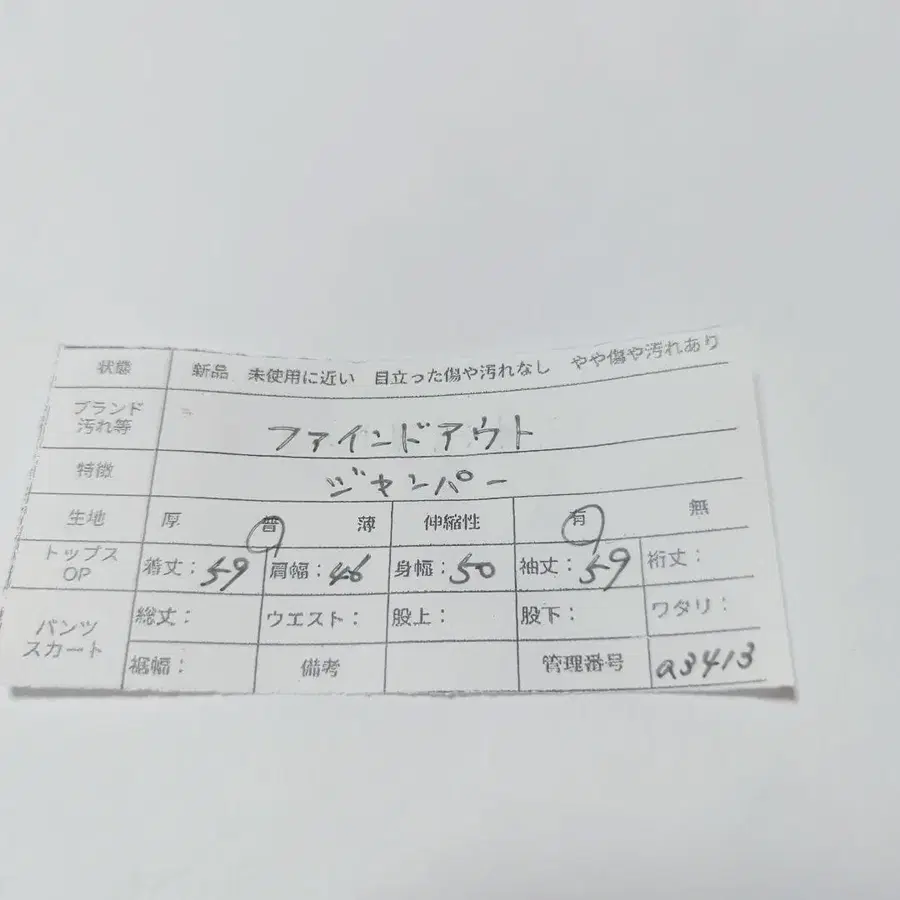 状態 新品 未使用に近い 目立った傷や汚れなし やや傷や汚れあり
ブランド
汚れ等 ファインドアウト
特徴 ジャンパー
生地 厚 普 薄 伸縮性 有 無
トップス
OP 着丈:59 肩幅:46 身幅:50 袖丈:59 裄丈:
パンツ
スカート 総丈: ウエスト: 股上: 股下: ワタリ:
裾幅: 備考 管理番号 a3413